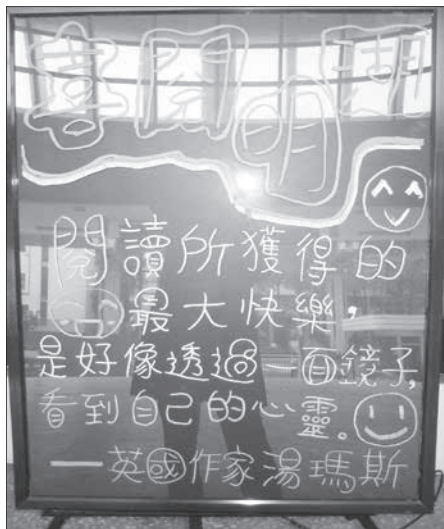 喜閱明湖
閱讀所獲得的
最大快樂,
是好像透過一面鏡子,
看到自己的心靈。
—英國作家湯瑪斯